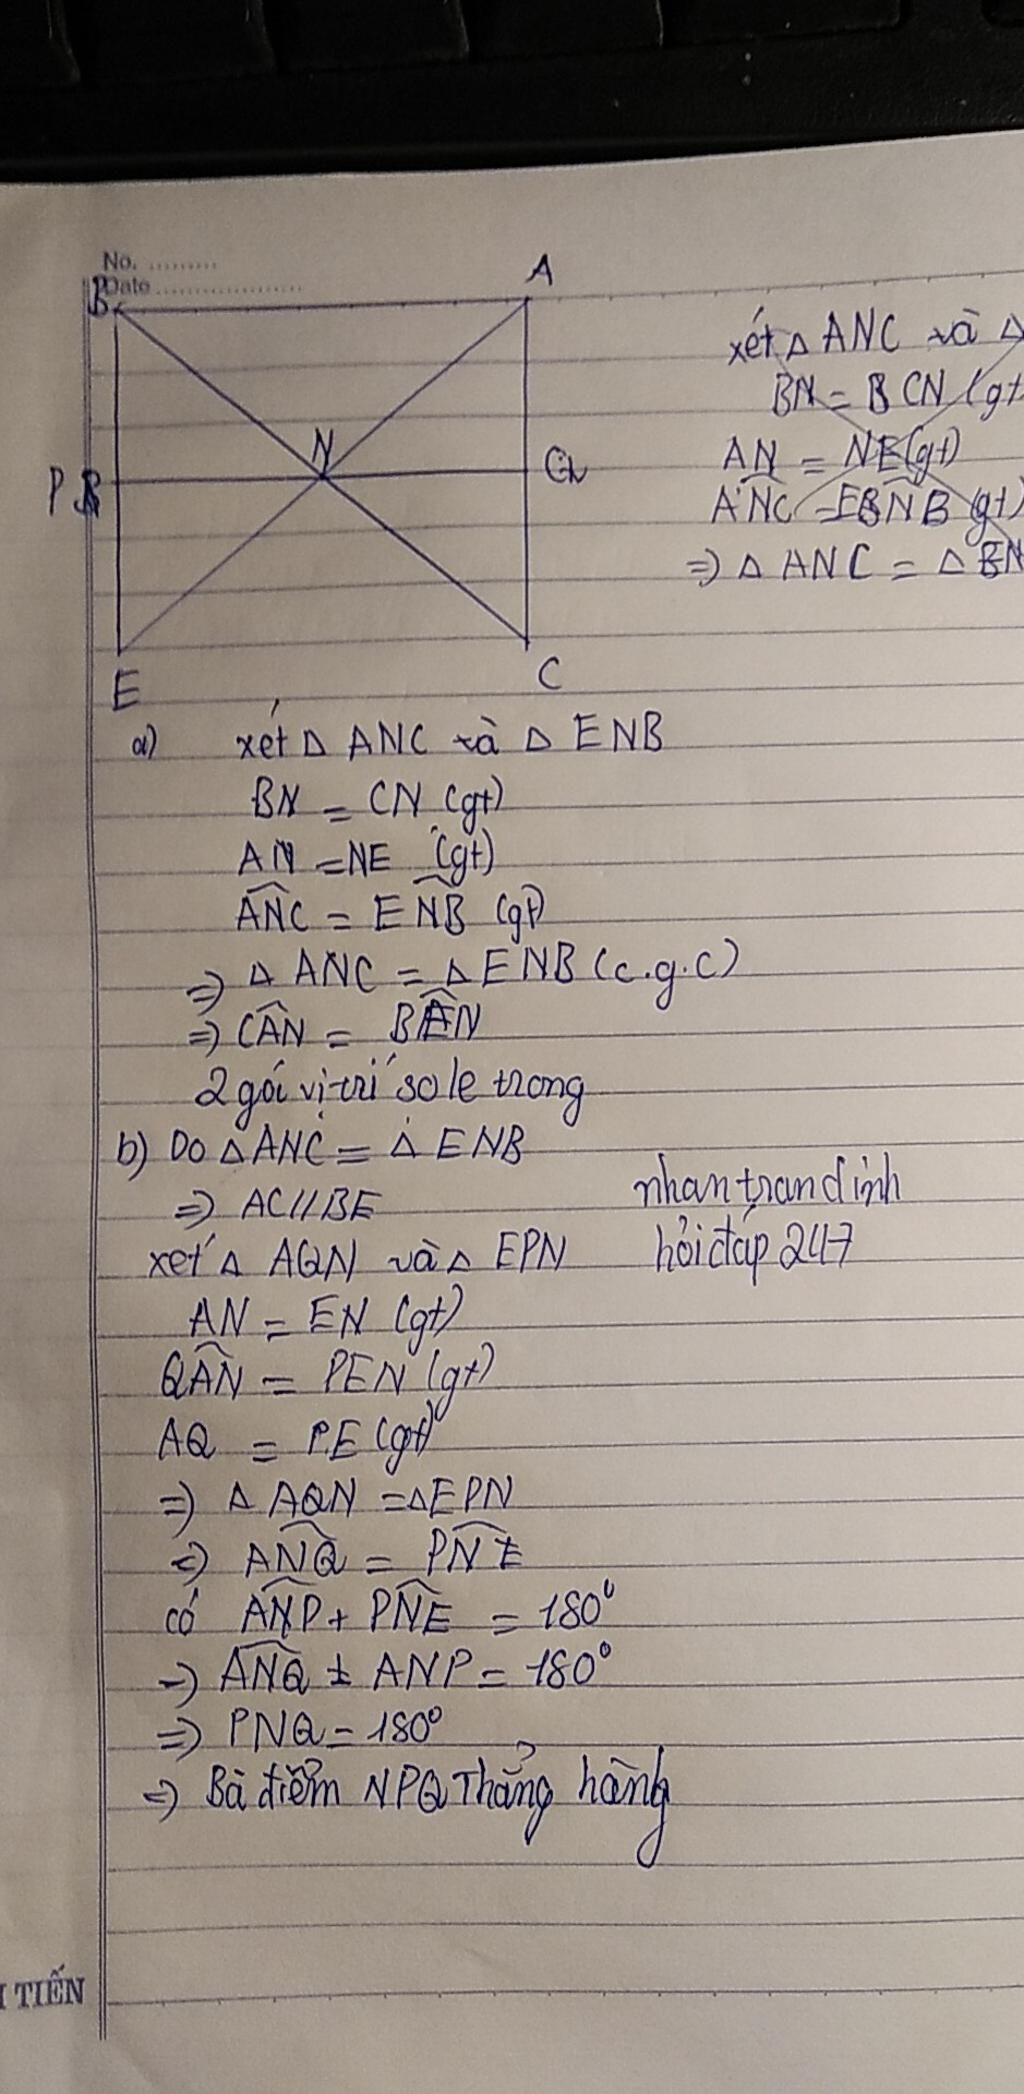 No. .........
Date ....................
B
A
N
P
Q
E
C
xét Δ ANC và Δ
BN = CN (gt
AN = NE (gt)
ANC = ENB (gt)
=> Δ ANC = Δ EN
a) xét Δ ANC và Δ ENB
BN = CN (gt)
AN = NE (gt)
ANC = ENB (gt)
=> Δ ANC = Δ ENB (c.g.c)
=> CAN = BEN
2 gói vị trí so le trong
b) Do Δ ANC = Δ ENB
=> AC // BE
nhantrandinh
hỏi đáp 247
xét Δ AQN và Δ EPN
AN = EN (gt)
QAN = PEN (gt)
AQ = PE (gt)
=> Δ AQN = Δ EPN
=> ANQ = PNE
có ANP + PNE = 180°
=> ANQ + ANP = 180°
=> PNQ = 180°
=> Bà điểm NPQ Thẳng hàng
TIẾN